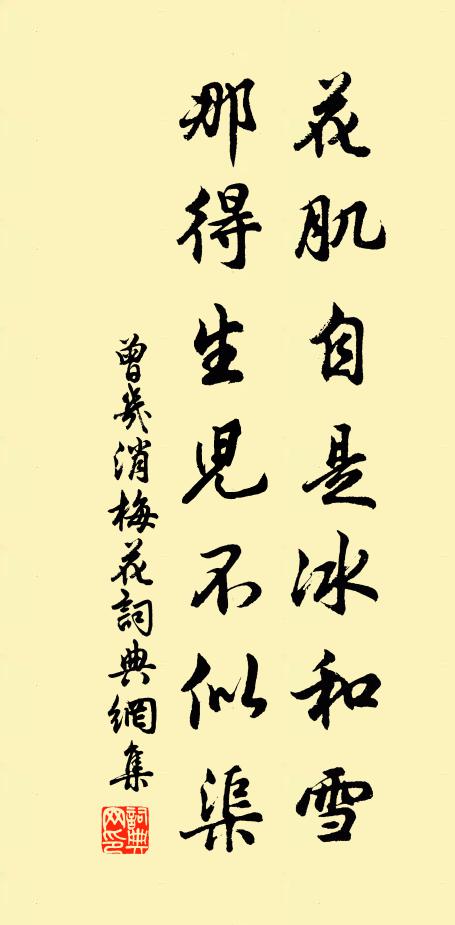 花肌自是冰和雪
那得生兒不似渠
曾幾消梅花詞典網集
詞典網印